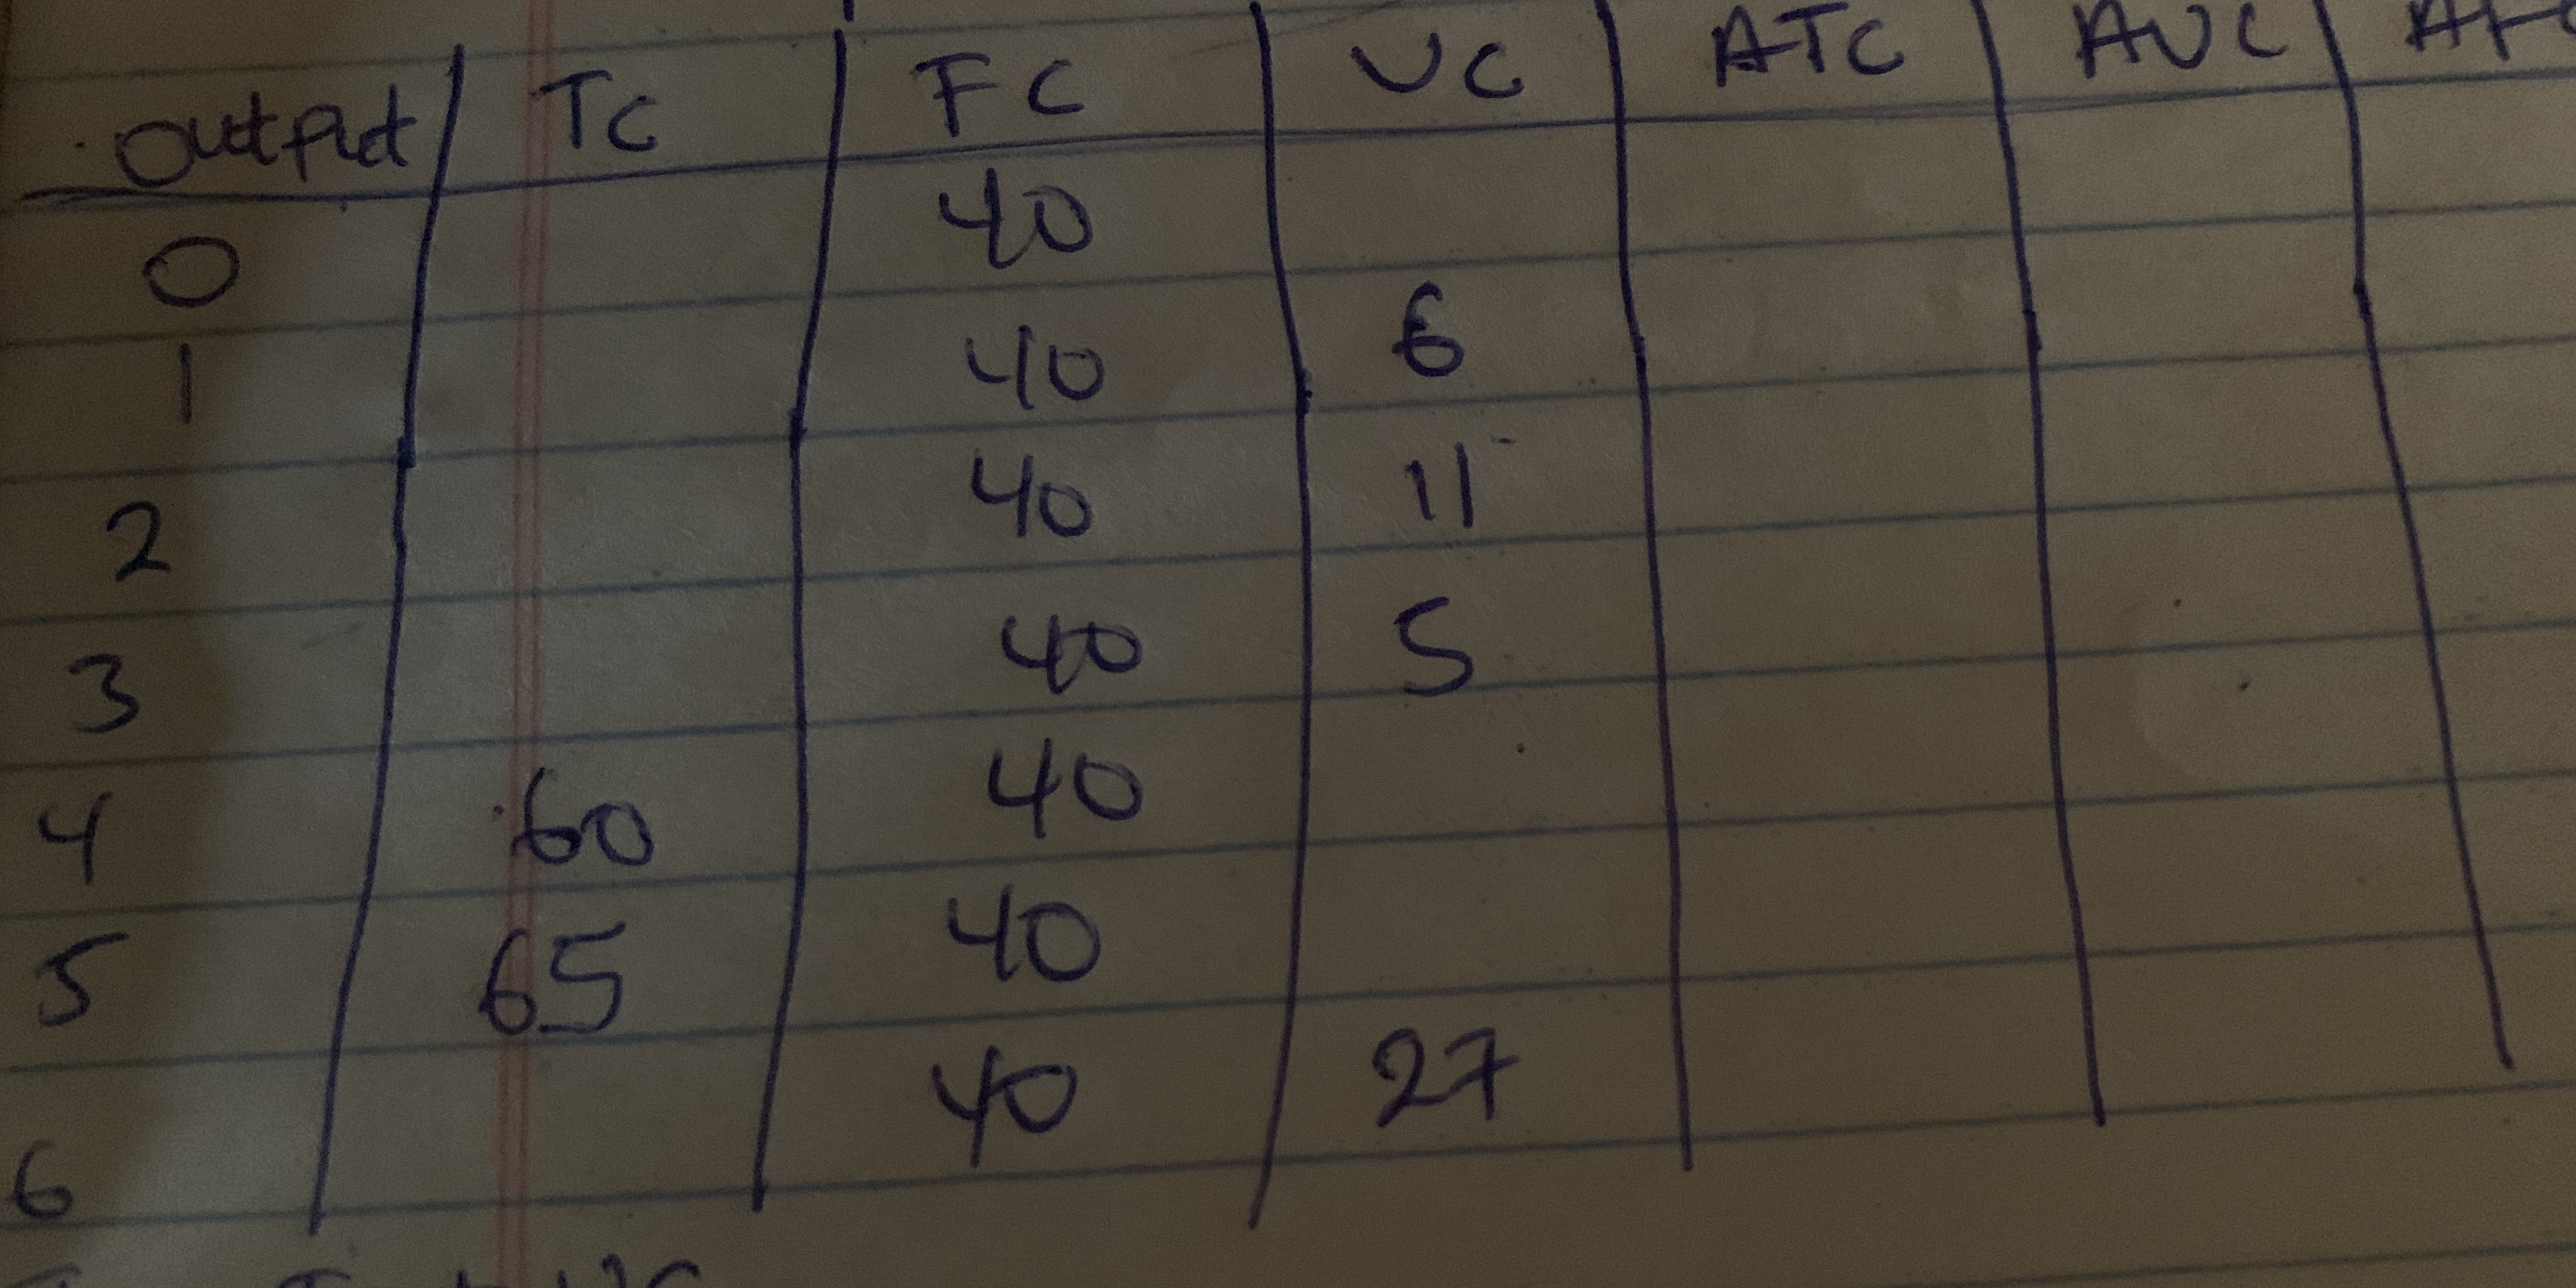 Output TC FC VC ATC AVC
0 40
1 40 6
2 40 11
3 40 5
4 60 40
5 65 40
6 40 27